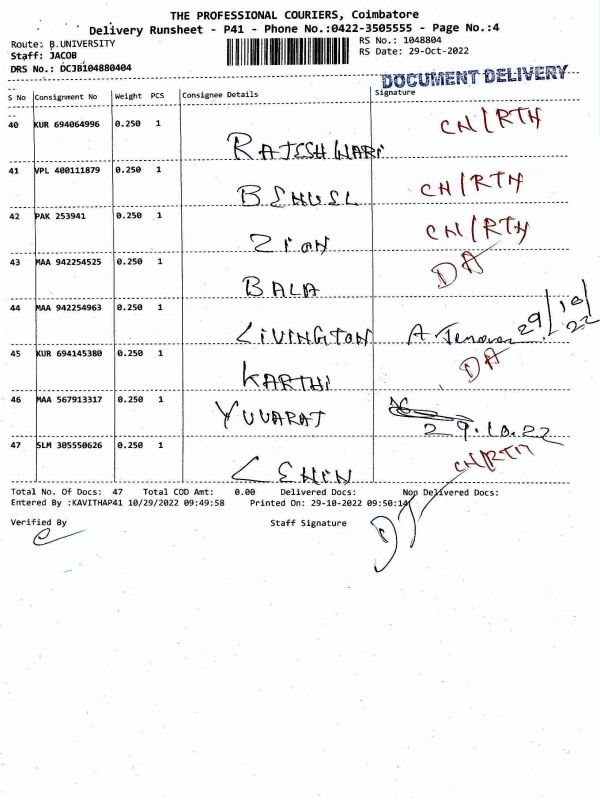 THE PROFESSIONAL COURIERS, Coimbatore
Delivery Runsheet - P41 - Phone No.:0422-3505555 - Page No.:4
Route: B.UNIVERSITY
RS No.: 1048804
Staff: JACOB
RS Date: 29-Oct-2022
DRS No.: DCJB104880404
DOCUMENT DELIVERY
S No Consignment No Weight PCS Consignee Details Signature
40 KUR 694064996 0.250 1 CN/RTH
RAJESHWARI
41 VPL 400111879 0.250 1 CN/RTH
42 PAK 253941 0.250 1 CN/RTH
ZION
43 MAA 942254525 0.250 1 DA
BALA
44 MAA 942254963 0.250 1 29/10/22
LIVINGTON A.
45 KUR 694145380 0.250 1 DA
KARTHI
46 MAA 567913317 0.250 1
YUVARAJ 29.10.22
47 SLM 305550626 0.250 1 CN/RTH
LENIN
Total No. Of Docs: 47 Total COD Amt: 0.00 Delivered Docs: Non Delivered Docs:
Entered By :KAVITHAP41 10/29/2022 09:49:58 Printed On: 29-10-2022 09:50:14
Verified By Staff Signature